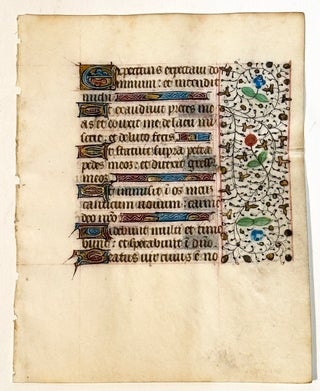 Expectans expectavi do
minum: et intendit
michi
Et exaudivit preces me
as et eduxit me de lacu mi
serie: et de luto fecis
Et statuit supra petra
pedes meos: et direxit gress'
meos
Et inmisit i os meu
canticum novum: carmē
deo nro
Videbunt multi et time
bunt: et sperabunt i dno
Beatus vir cuius ē no